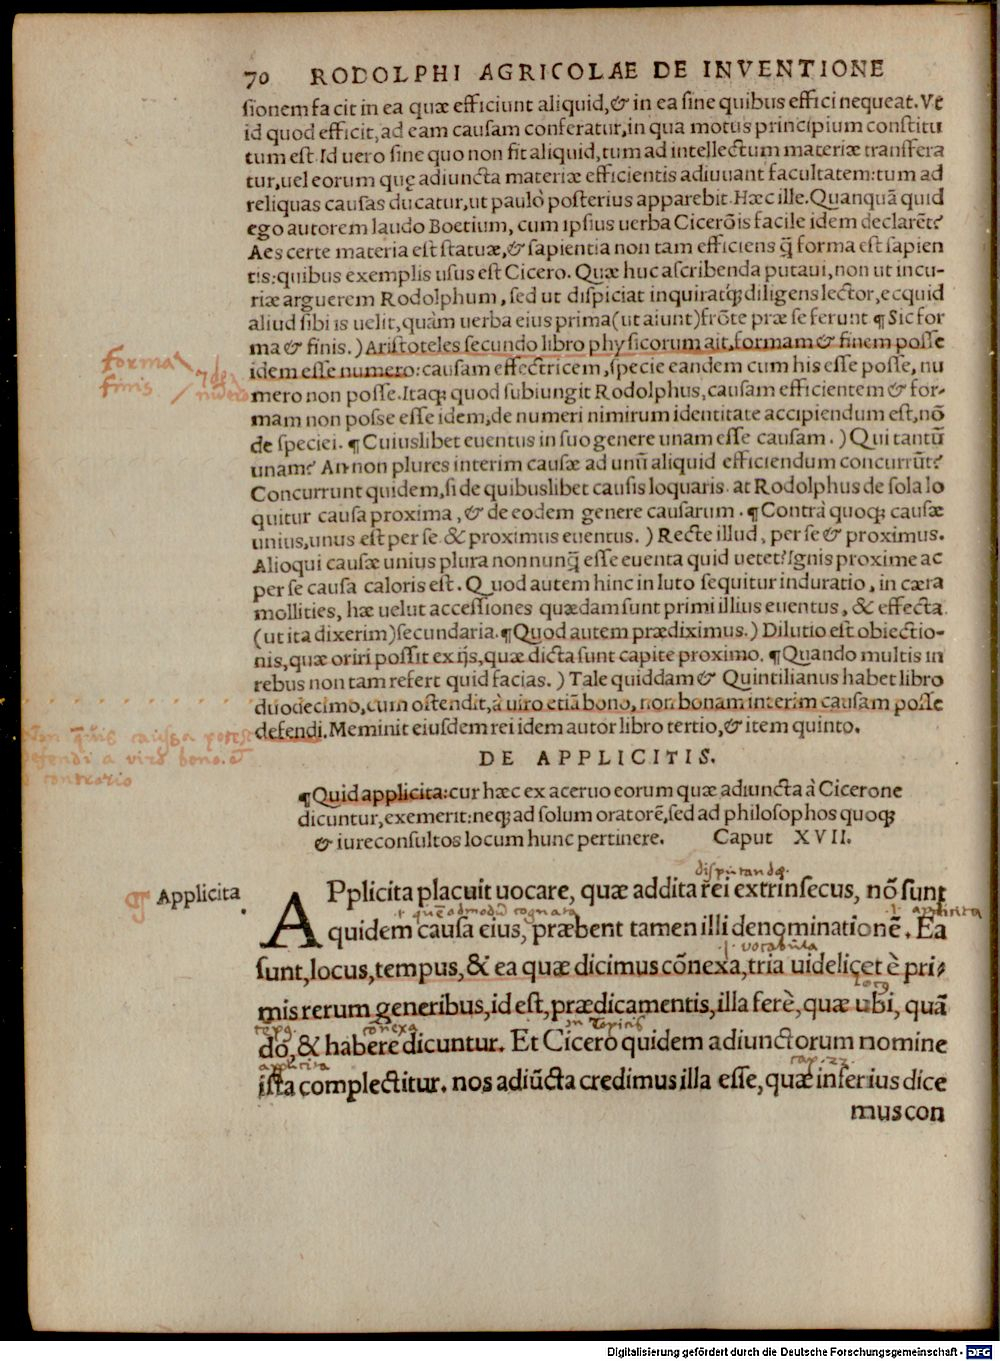 70 RODOLPHI AGRICOLAE DE INVENTIONE
sionem facit in ea quæ efficiunt aliquid, & in ea sine quibus effici nequeat. Vt
id quod efficit, ad eam causam conferatur, in qua motus principium constitu
tum est. Id uero sine quo non fit aliquid, tum ad intellectum materiæ transfera
tur, uel eorum quę adiuncta materiæ efficientis adiuuant facultatem: tum ad
reliquas causas ducatur, ut paulò posterius apparebit. Hæc ille. Quanquã quid
ego autorem laudo Boetium, cum ipsius uerba Cicerõis facile idem declarẽt?
Aes certe materia est statuæ, & sapientia non tam efficiens q̃ forma est sapien
tis: quibus exemplis usus est Cicero. Quæ huc ascribenda putaui, non ut incu-
riæ arguerem Rodolphum, sed ut dispiciat inquiratq; diligens lector, ecquid
aliud sibi is uelit, quàm uerba eius prima (ut aiunt) frõte præ se ferunt ¶ Sic for
ma & finis.) Aristoteles secundo libro physicorum ait, formam & finem posse
idem esse numero: causam effectricem, specie eandem cum his esse posse, nu
mero non posse. Itaq; quod subiungit Rodolphus, causam efficientem & for-
mam non posse esse idem, de numeri nimirum identitate accipiendum est, nõ
de speciei. ¶ Cuiuslibet euentus in suo genere unam esse causam.) Qui tantũ
unam? An non plures interim causæ ad unũ aliquid efficiendum concurrũt?
Concurrunt quidem, si de quibuslibet causis loquaris. at Rodolphus de sola lo
quitur causa proxima, & de eodem genere causarum. ¶ Contrà quoq; causæ
unius, unus est per se & proximus euentus.) Recte illud, per se & proximus.
Alioqui causæ unius plura nonnunq̃ esse euenta quid uetet? Ignis proxime ac
per se causa caloris est. Quod autem hinc in luto sequitur induratio, in cæra
mollities, hæ uelut accessiones quædam sunt primi illius euentus, & effecta
(ut ita dixerim) secundaria. ¶ Quod autem prædiximus.) Dilutio est obiectio-
nis, quæ oriri possit ex ijs, quæ dicta sunt capite proximo. ¶ Quando multis in
rebus non tam refert quid facias.) Tale quiddam & Quintilianus habet libro
duodecimo, cum ostendit, à uiro etiã bono, non bonam interim causam posse
defendi. Meminit eiusdem rei idem autor libro tertio, & item quinto.
forma
finis
DE APPLICITIS.
¶ Quid applicita: cur hæc ex aceruo eorum quæ adiuncta à Cicerone
dicuntur, exemerit: neq; ad solum oratorẽ, sed ad philosophos quoq;
& iureconsultos locum hunc pertinere. Caput XVII.
Applicita
APplicita placuit uocare, quæ addita rei extrinsecus, nõ sunt
quidem causa eius, præbent tamen illi denominationẽ. Ea
sunt, locus, tempus, & ea quæ dicimus cõnexa, tria uidelicet è pri-
mis rerum generibus, id est, prædicamentis, illa ferè, quæ ubi, quã
do, & habere dicuntur. Et Cicero quidem adiunctorum nomine
ista complectitur. nos adiũcta credimus illa esse, quæ inferius dice
mus con
Digitalisierung gefördert durch die Deutsche Forschungsgemeinschaft - DFG